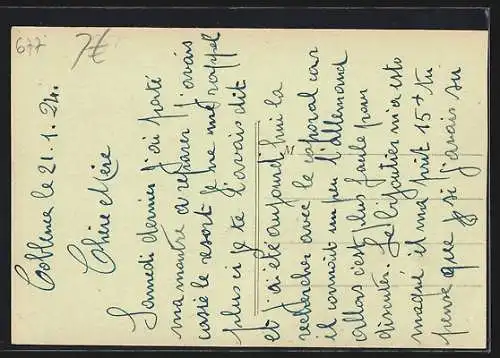 677
7€
Coblence le 21.1.24.
Chère Mère
Samedi dernier j'ai porté
ma montre a reparer j'avais
cassé le resort je ne me rappel
plus si je te l'avais dit
et j'ai été aujourd'hui la
rechercher avec le caporal car
il connait un peu l'allemand
alors c'est plus facile pour
discuter. Le bijoutier m'a
maqué il m'a prit 15 + tu
pense que si j'avais su